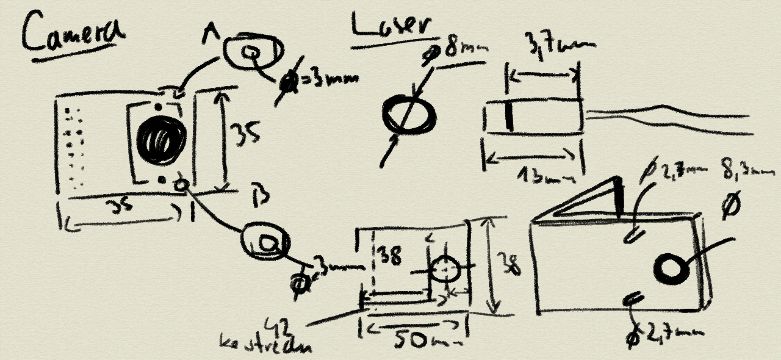 Camera
A
Ø=3mm
35
35
B
3mm
Ø
Laser
Ø8mm
3,7mm
13mm
38
38
42
ke středu
50mm
Ø2,7mm
8,3mm
Ø
Ø2,7mm